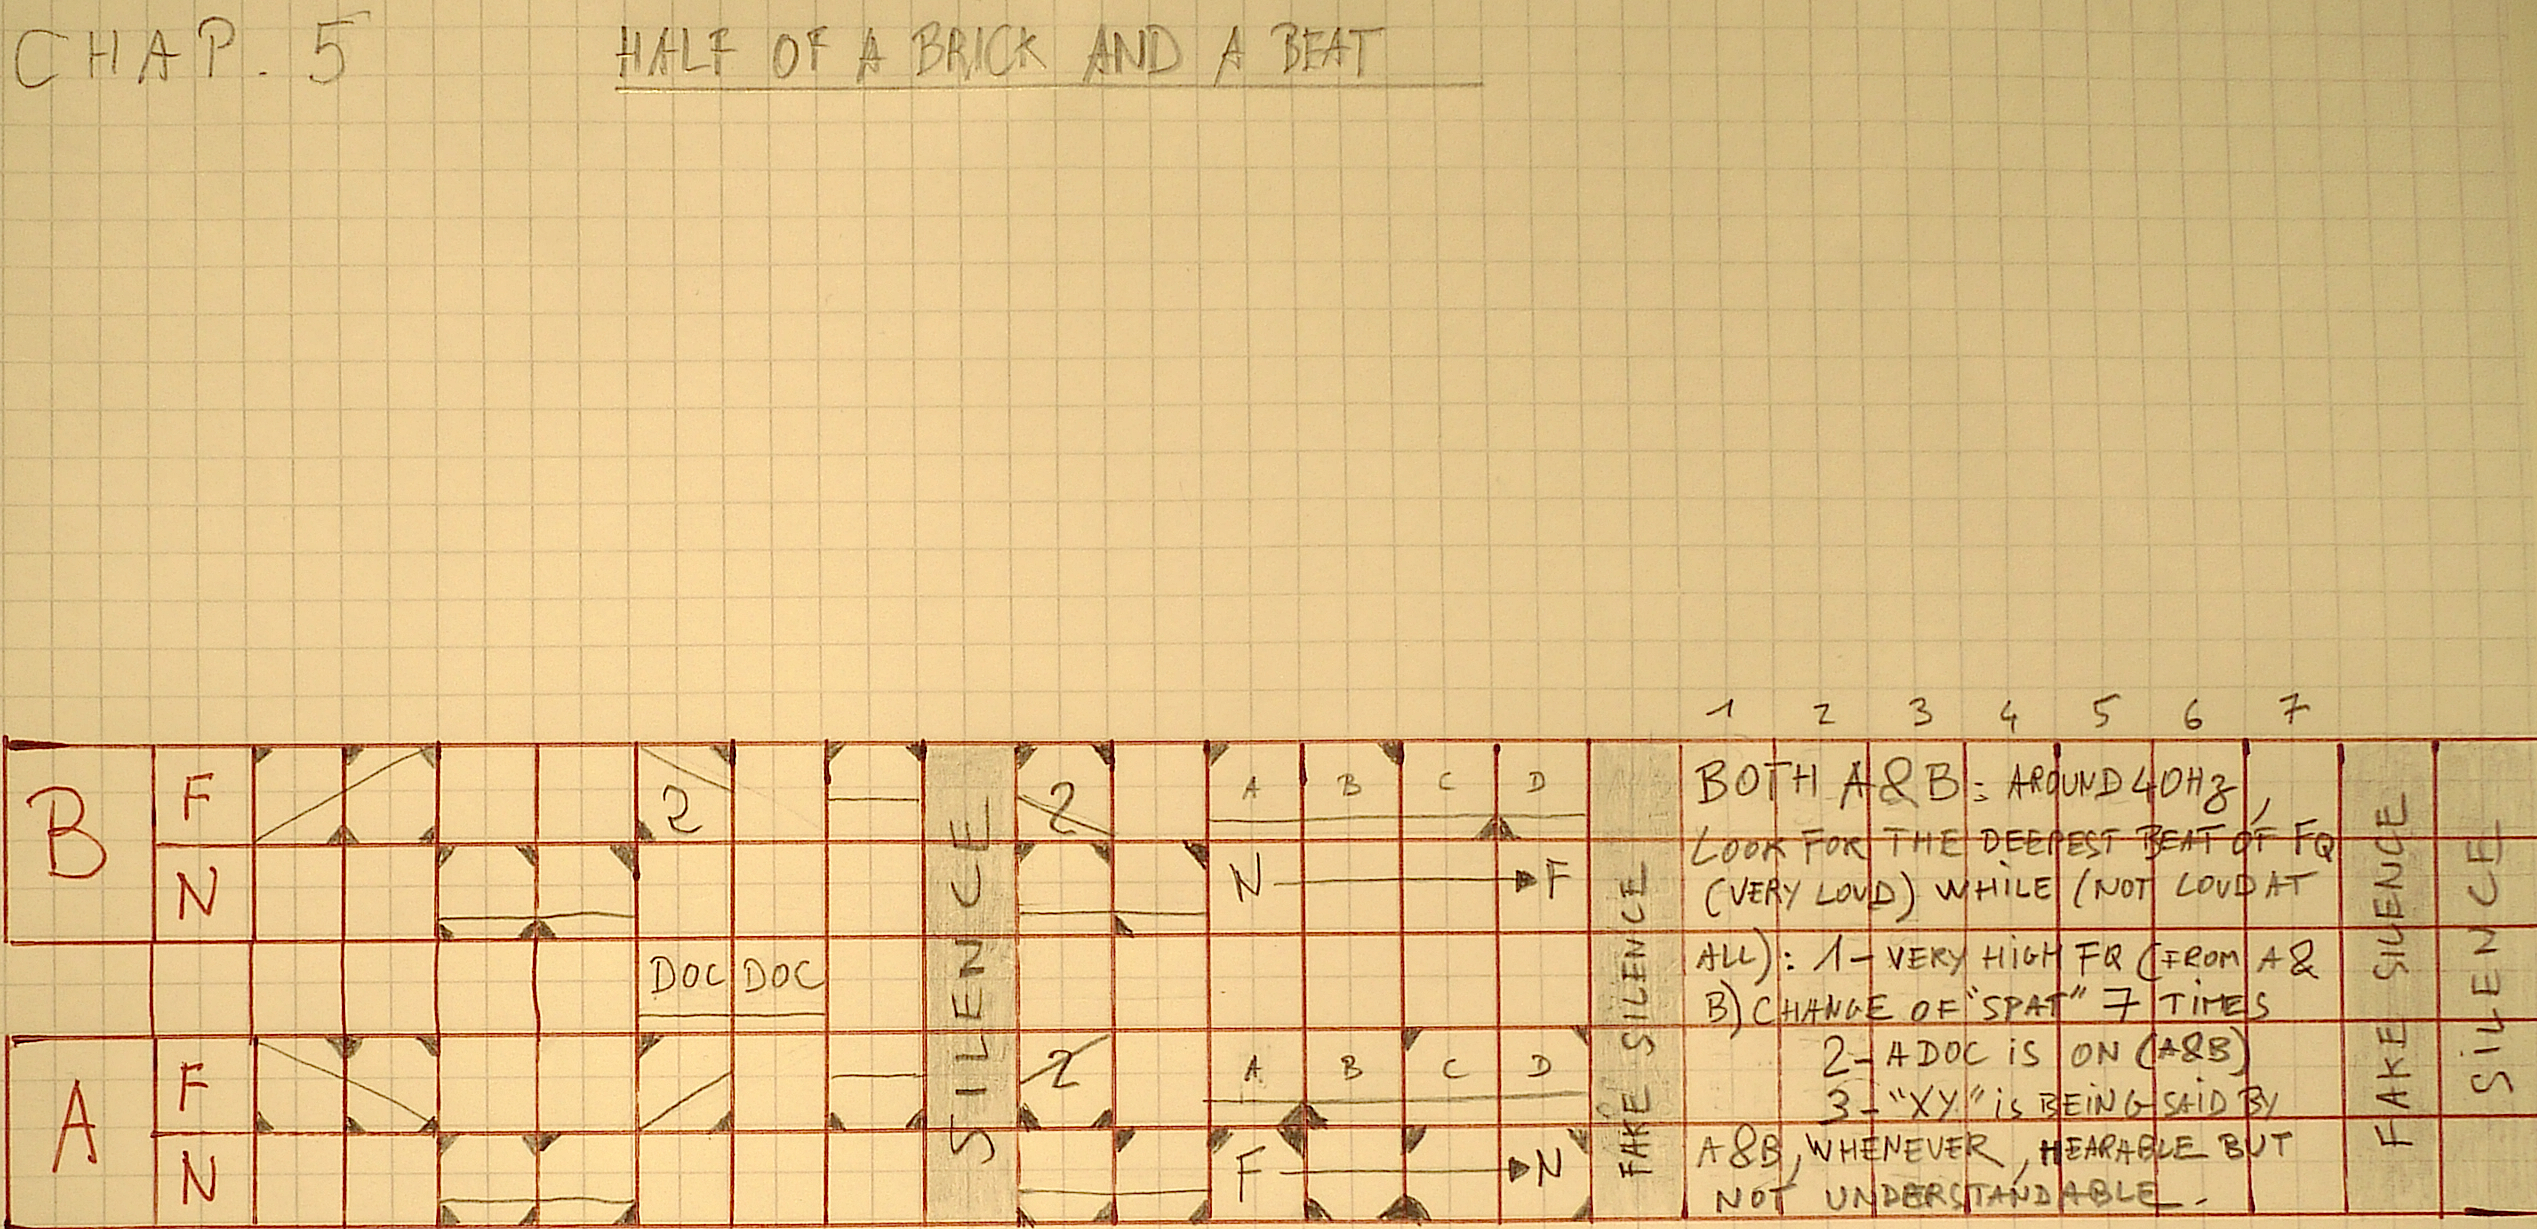 CHAP. 5
HALF OF A BRICK AND A BEAT
1 2 3 4 5 6 7
B
F
2
SILENCE
2
A B C D
FAKE SILENCE
BOTH A&B: AROUND 40HZ,
LOOK FOR THE DEEPEST BEAT OF FQ
N
N F
(VERY LOUD) WHILE (NOT LOUD AT
DOC DOC
ALL): 1- VERY HIGH FQ (FROM A &
B) CHANGE OF "SPAT" 7 TIMES
A
F
2
A B C D
2- A DOC iS ON (A&B)
3- "XY" iS BEiNG SAiD BY
N
F N
A&B, WHENEVER, HEARABLE BUT
NOT UNDERSTANDABLE.
FAKE SILENCE
SiLENCE